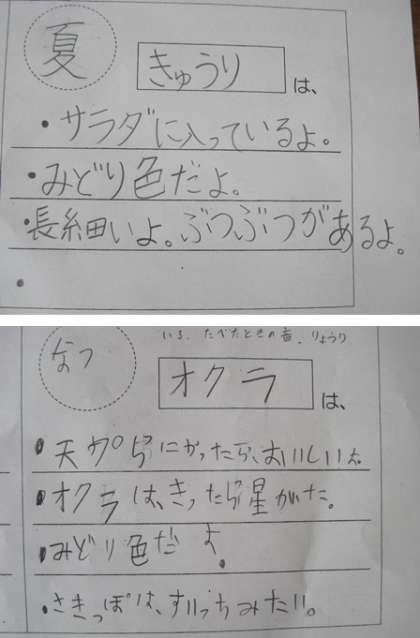 夏
きゅうり は、
・サラダに入っているよ。
・みどり色だよ。
・長細いよ。ぶつぶつがあるよ。
・
いろ、たべたときの音、りょうり
なつ
オクラ は、
・天プらにかったら、おいしいよ。
・オクラは、きったら星がた。
・みどり色だよ。
・さきっぽは、すいっちみたい。